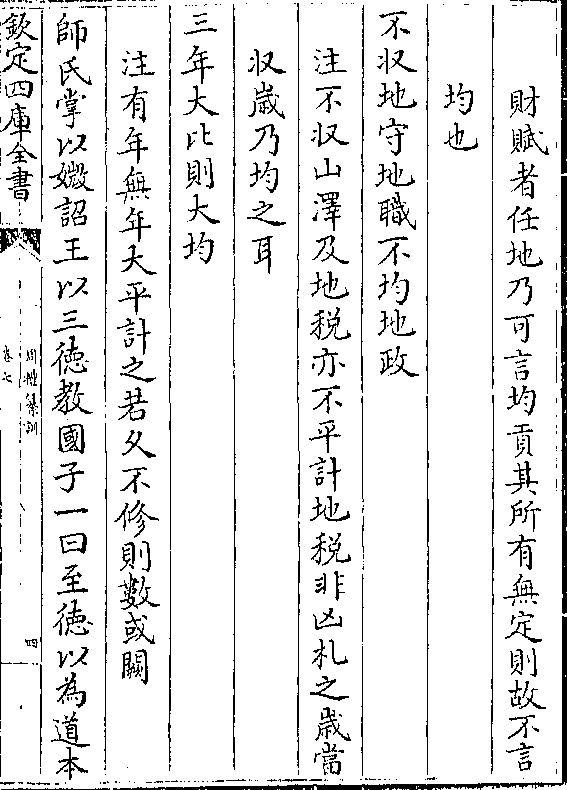 財賦者任地乃可言均貢其所有無定則故不言
均也
不收地守地職不均地政
注不收山澤及地稅亦不平計地稅非凶札之歲當
收歲乃均之耳
三年大比則大均
注有年無年大平計之若久不修則數或闕
師氏掌以媺詔王以三德教國子一曰至德以為道本
欽定四庫全書
周禮纂訓
卷七
四